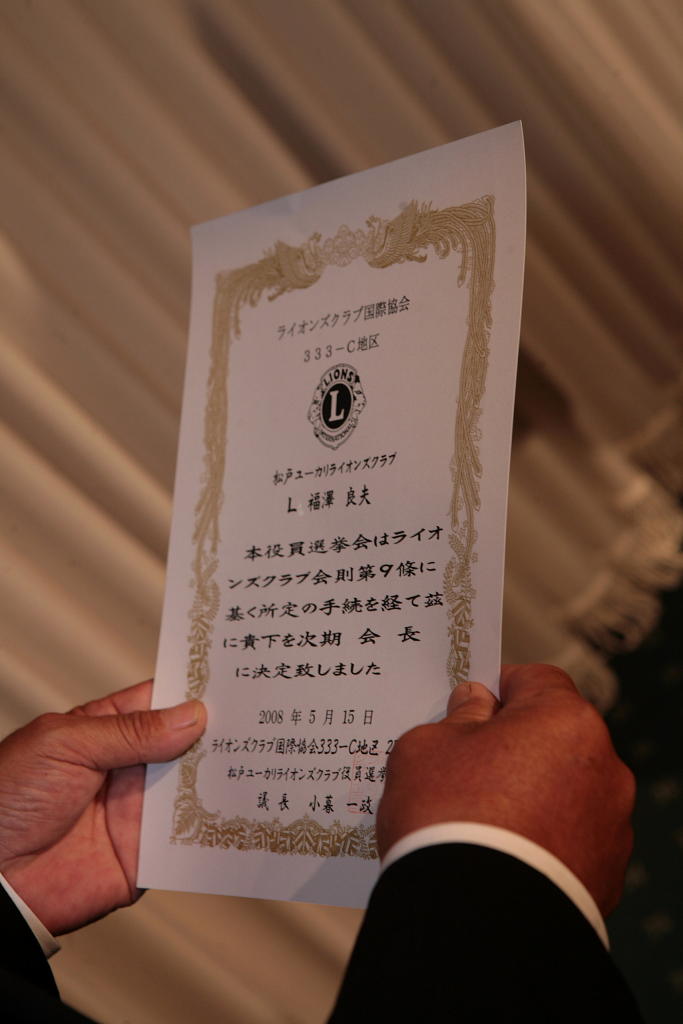 ライオンズクラブ国際協会
333-C地区
LIONS
L
INTERNATIONAL
松戸ユーカリライオンズクラブ
L. 福澤 良夫
本役員選挙会はライオ
ンズクラブ会則第9條に
基く所定の手続を経て茲
に貴下を次期 会 長
に決定致しました
2008 年 5 月 15 日
ライオンズクラブ国際協会333-C地区
松戸ユーカリライオンズクラブ役員選挙
議 長 小暮 一政